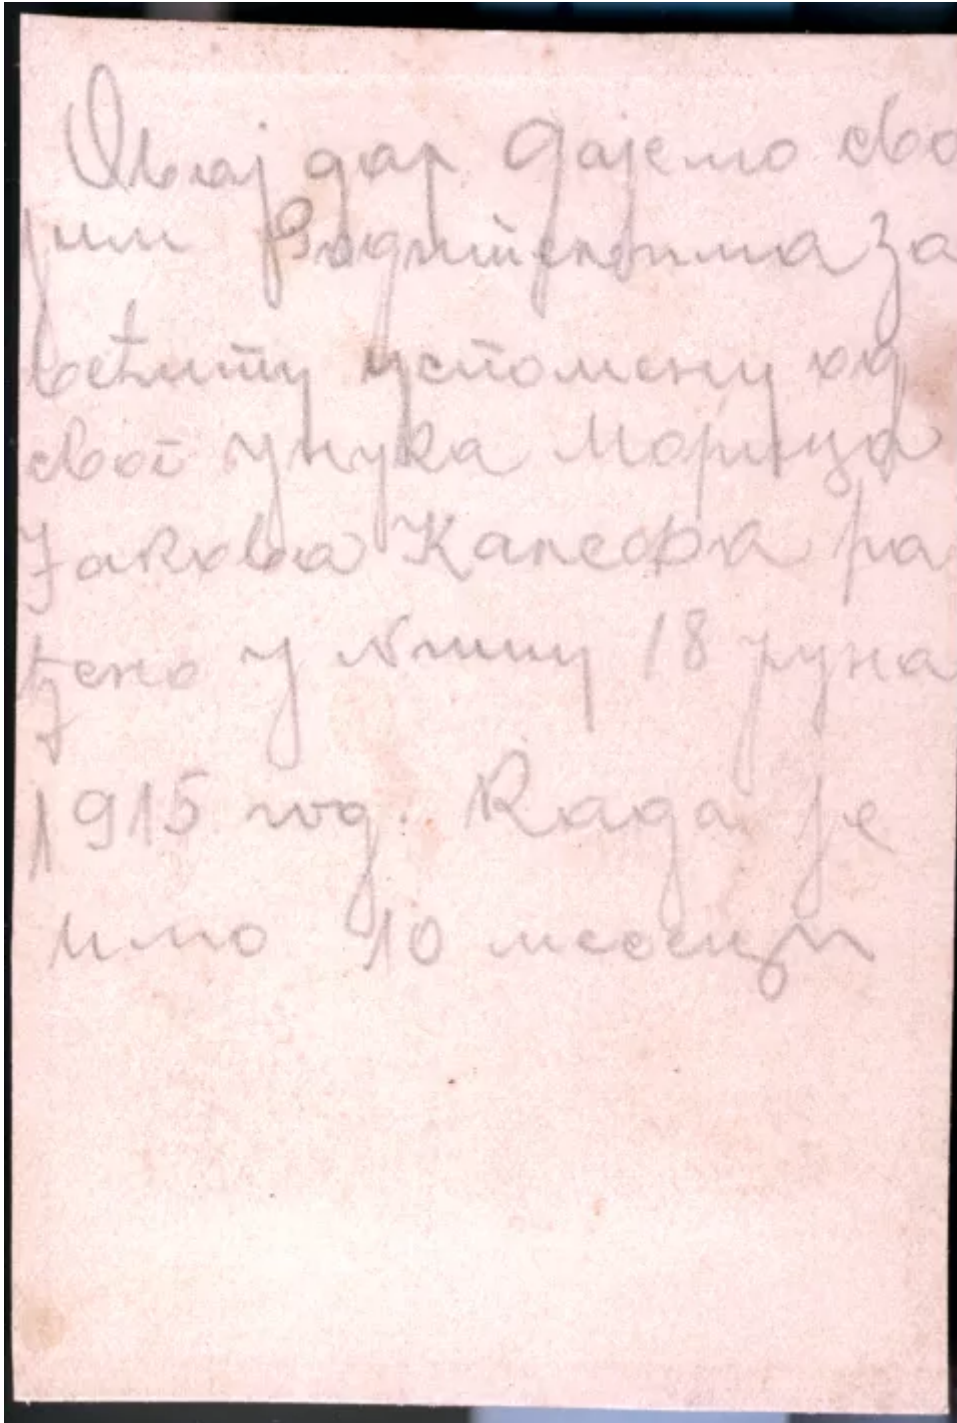 Овај дар дајемо сво
јим Родитељима за
већиту успомену од
свог унука Морица
Јакова Калефа ра
ђено у Нишу 18 јуна
1915 год. Када је
имо 10 месеци